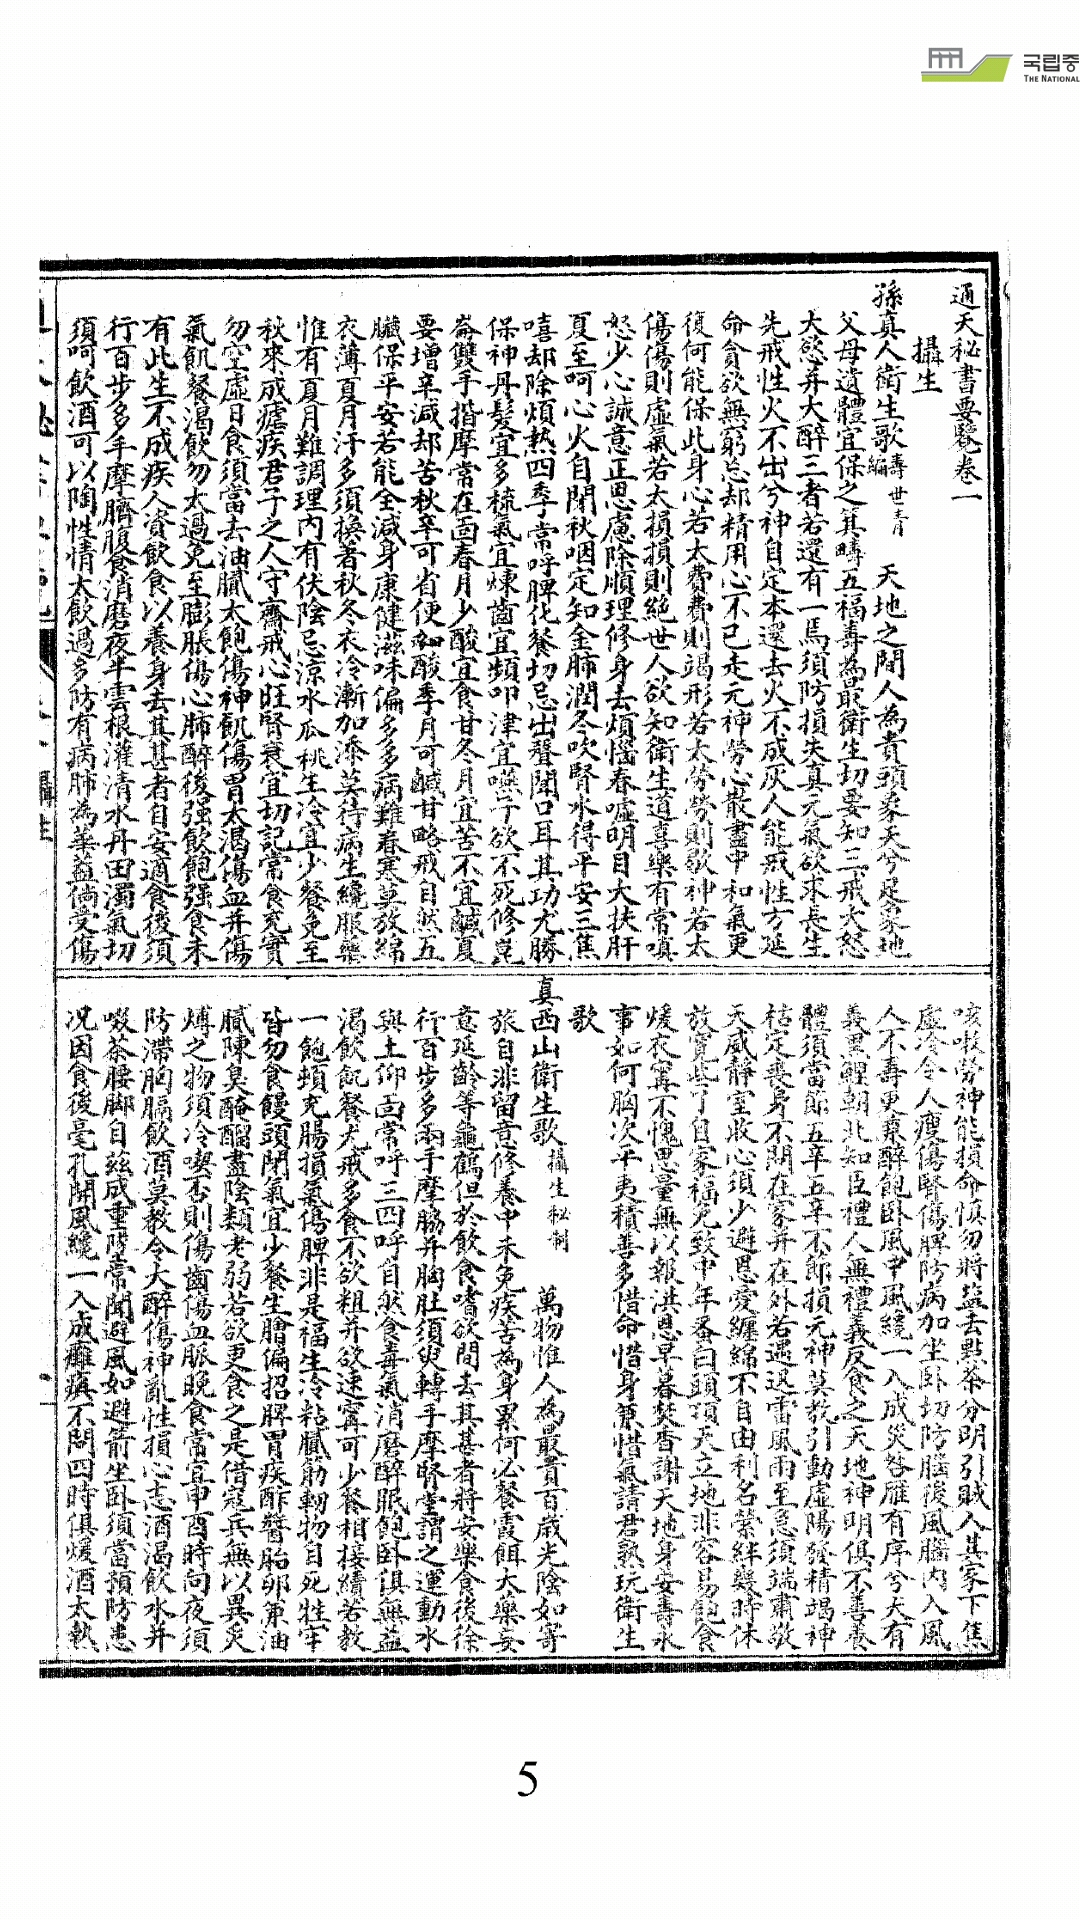 국립중
THE NATIONAL
通天秘書要覽卷一
攝生
孫真人衛生歌 壽世青編 天地之間人為貴頭象天兮足象地
父母遺體宜保之箕疇五福壽為最衛生切要知三戒大怒
大慾并大醉三者若還有一焉須防損失真元氣欲求長生
先戒性火不出兮神自定木還去火不成灰人能戒性方延
命貪欲無窮忘却精用心不已走元神勞心散盡中和氣更
復何能保此身心若太費費則竭形若太勞勞則歇神若太
傷傷則虛氣若太損損則絕世人欲知衛生道喜樂有常嗔
怒少心誠意正思慮除順理修身去煩惱春噓明目大扶肝
夏至呵心火自閑秋呬定知金肺潤冬吹腎水得平安三焦
嘻却除煩熱四季常呼脾化餐切忌出聲聞口耳其功尤勝
保神丹髮宜多梳氣宜煉齒宜頻叩津宜嚥子欲不死修崑
崙雙手揩摩常在面春月少酸宜食甘冬月宜苦不宜鹹夏
要增辛減却苦秋辛可省便加酸季月可鹹甘略戒自然五
臟保平安若能全減身康健滋味偏多多病難春寒莫放綿
衣薄夏月汗多須換着秋冬衣冷漸加添莫待病生纔服藥
惟有夏月難調理內有伏陰忌涼水瓜桃生冷宜少餐免至
秋來成瘧疾君子之人守齋戒心旺腎衰宜切記常食充實
勿空虛日食須當去油膩太飽傷神飢傷胃太渴傷血并傷
氣飢餐渴飲勿太過免至膨脹傷心肺醉後強飲飽強食未
有此生不成疾人資飲食以養身去其甚者自安適食後須
行百步多手摩臍腹食消磨夜半雲根灌清水丹田濁氣切
須呵飲酒可以陶性情太飲過多防有病肺為華蓋倘受傷
咳嗽勞神能損命慎勿將盐去點茶分明引賊入其家下焦
虛冷令人瘦傷腎傷脾防病加坐卧切防腦後風腦內入風
人不壽更兼醉飽卧風中風纔一入成災咎雁有序兮犬有
義黑鯉朝北知臣禮人無禮義反食之天地神明俱不善養
體須當節五辛五辛不節損元神莫教引動虛陽發精竭神
枯定喪身不問在家并在外若遇迅雷風雨至急須端肅敬
天威靜室收心須少避恩愛纏綿不自由利名縈絆幾時休
放寬些子自家福免致中年蚤白頭頂天立地非容易飽食
煖衣寧不愧思量無以報洪恩早暮焚香謝天地身安壽永
事如何胸次平夷積善多惜命惜身兼惜氣請君熟玩衛生
歌
真西山衛生歌 攝生秘剖 萬物惟人為最貴百歲光陰如寄
旅自非留意修養中未免疾苦為身累何必餐霞餌大藥妄
意延齡等龜鶴但於飲食嗜欲間去其甚者將安樂食後徐
行百步多兩手摩脇并胸肚須臾轉手摩腎堂謂之運動水
與土仰面常呼三四呼自然食毒氣消磨醉眠飽卧俱無益
渴飲飢餐尤戒多食不欲粗并欲速寧可少餐相接續若教
一飽頓充腸損氣傷脾非是福生冷粘膩筋韌物自死牲牢
皆勿食饅頭閉氣宜少餐生膾偏招脾胃疾酢醬胎卵兼油
膩陳臭醃醶盡陰類老弱若欲更食之是借寇兵無以異炙
煿之物須冷喫否則傷齒傷血脈晚食常宜申酉時向夜須
防滯胸膈飲酒莫教令大醉傷神亂性損心志酒渴飲水并
啜茶腰脚自茲成重墜常聞避風如避箭坐卧須當預防患
况因食後毫孔開風纔一入成癱瘓不問四時俱煖酒太熱
攝生
5